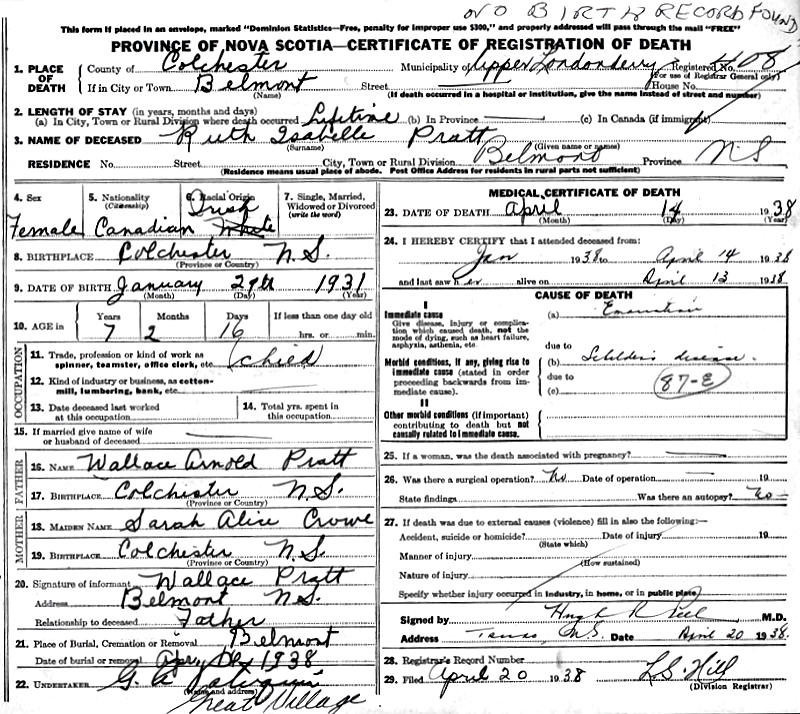 NO BIRTH RECORD FOUND
This form if placed in an envelope, marked "Dominion Statistics—Free, penalty for improper use $300," and properly addressed will pass through the mail "FREE"
PROVINCE OF NOVA SCOTIA—CERTIFICATE OF REGISTRATION OF DEATH
1. PLACE OF DEATH
County of Colchester Municipality of Upper Londonderry Registered No. 08
(For use of Registrar General only)
If in City or Town Belmont Street House No.
(Name) (If death occurred in a hospital or institution, give the name instead of street and number)
2. LENGTH OF STAY (in years, months and days)
(a) In City, Town or Rural Division where death occurred Lifetime (b) In Province — (c) In Canada (if immigrant)
3. NAME OF DECEASED Ruth Isabelle Pratt
(Surname) (Given name or names)
RESIDENCE No. Street City, Town or Rural Division Belmont Province N S
(Residence means usual place of abode. Post Office Address for residents in rural parts not sufficient)
4. Sex 5. Nationality (Citizenship) 6. Racial Origin 7. Single, Married, Widowed or Divorced (write the word)
Irish
Female Canadian White
8. BIRTHPLACE Colchester N.S.
(Province or Country)
9. DATE OF BIRTH January 29th 1931
(Month) (Day) (Year)
10. AGE in Years Months Days If less than one day old
7 2 16 hrs. or min.
OCCUPATION
11. Trade, profession or kind of work as spinner, teamster, office clerk, etc. (child)
12. Kind of industry or business, as cotton-mill, lumbering, bank, etc.
13. Date deceased last worked at this occupation
14. Total yrs. spent in this occupation
15. If married give name of wife or husband of deceased —
FATHER
16. NAME Wallace Arnold Pratt
17. BIRTHPLACE Colchester N.S.
(Province or Country)
MOTHER
18. MAIDEN NAME Sarah Alice Crowe
19. BIRTHPLACE Colchester N.S.
(Province or Country)
20. Signature of informant Wallace Pratt
Address Belmont N.S.
Relationship to deceased Father
21. Place of Burial, Cremation or Removal Belmont
Date of burial or removal Apr. 16 1938
22. UNDERTAKER G. A.
(Name and address)
Great Village
MEDICAL CERTIFICATE OF DEATH
23. DATE OF DEATH April 14 1938
(Month) (Day) (Year)
24. I HEREBY CERTIFY that I attended deceased from:
Jan 1938 to April 14 1938
and last saw her alive on April 13 1938
CAUSE OF DEATH
I
Immediate cause
Give disease, injury or complication which caused death, not the mode of dying, such as heart failure, asphyxia, asthenia, etc.
(a)
due to
Morbid conditions, if any, giving rise to immediate cause (stated in order proceeding backwards from immediate cause).
(b) Schilders disease.
due to
(c) 87-E
II
Other morbid conditions (if important) contributing to death but not causally related to immediate cause.
25. If a woman, was the death associated with pregnancy? —
26. Was there a surgical operation? No Date of operation — 19
State findings Was there an autopsy? No
27. If death was due to external causes (violence) fill in also the following:—
Accident, suicide or homicide? Date of injury 19
(State which)
Manner of injury
(How sustained)
Nature of injury
Specify whether injury occurred in industry, in home, or in public place
Signed by Hugh R Peel M.D.
Address Truro, N.S. Date April 20 1938.
28. Registrar's Record Number
29. Filed April 20 1938 L S Hill
(Division Registrar)